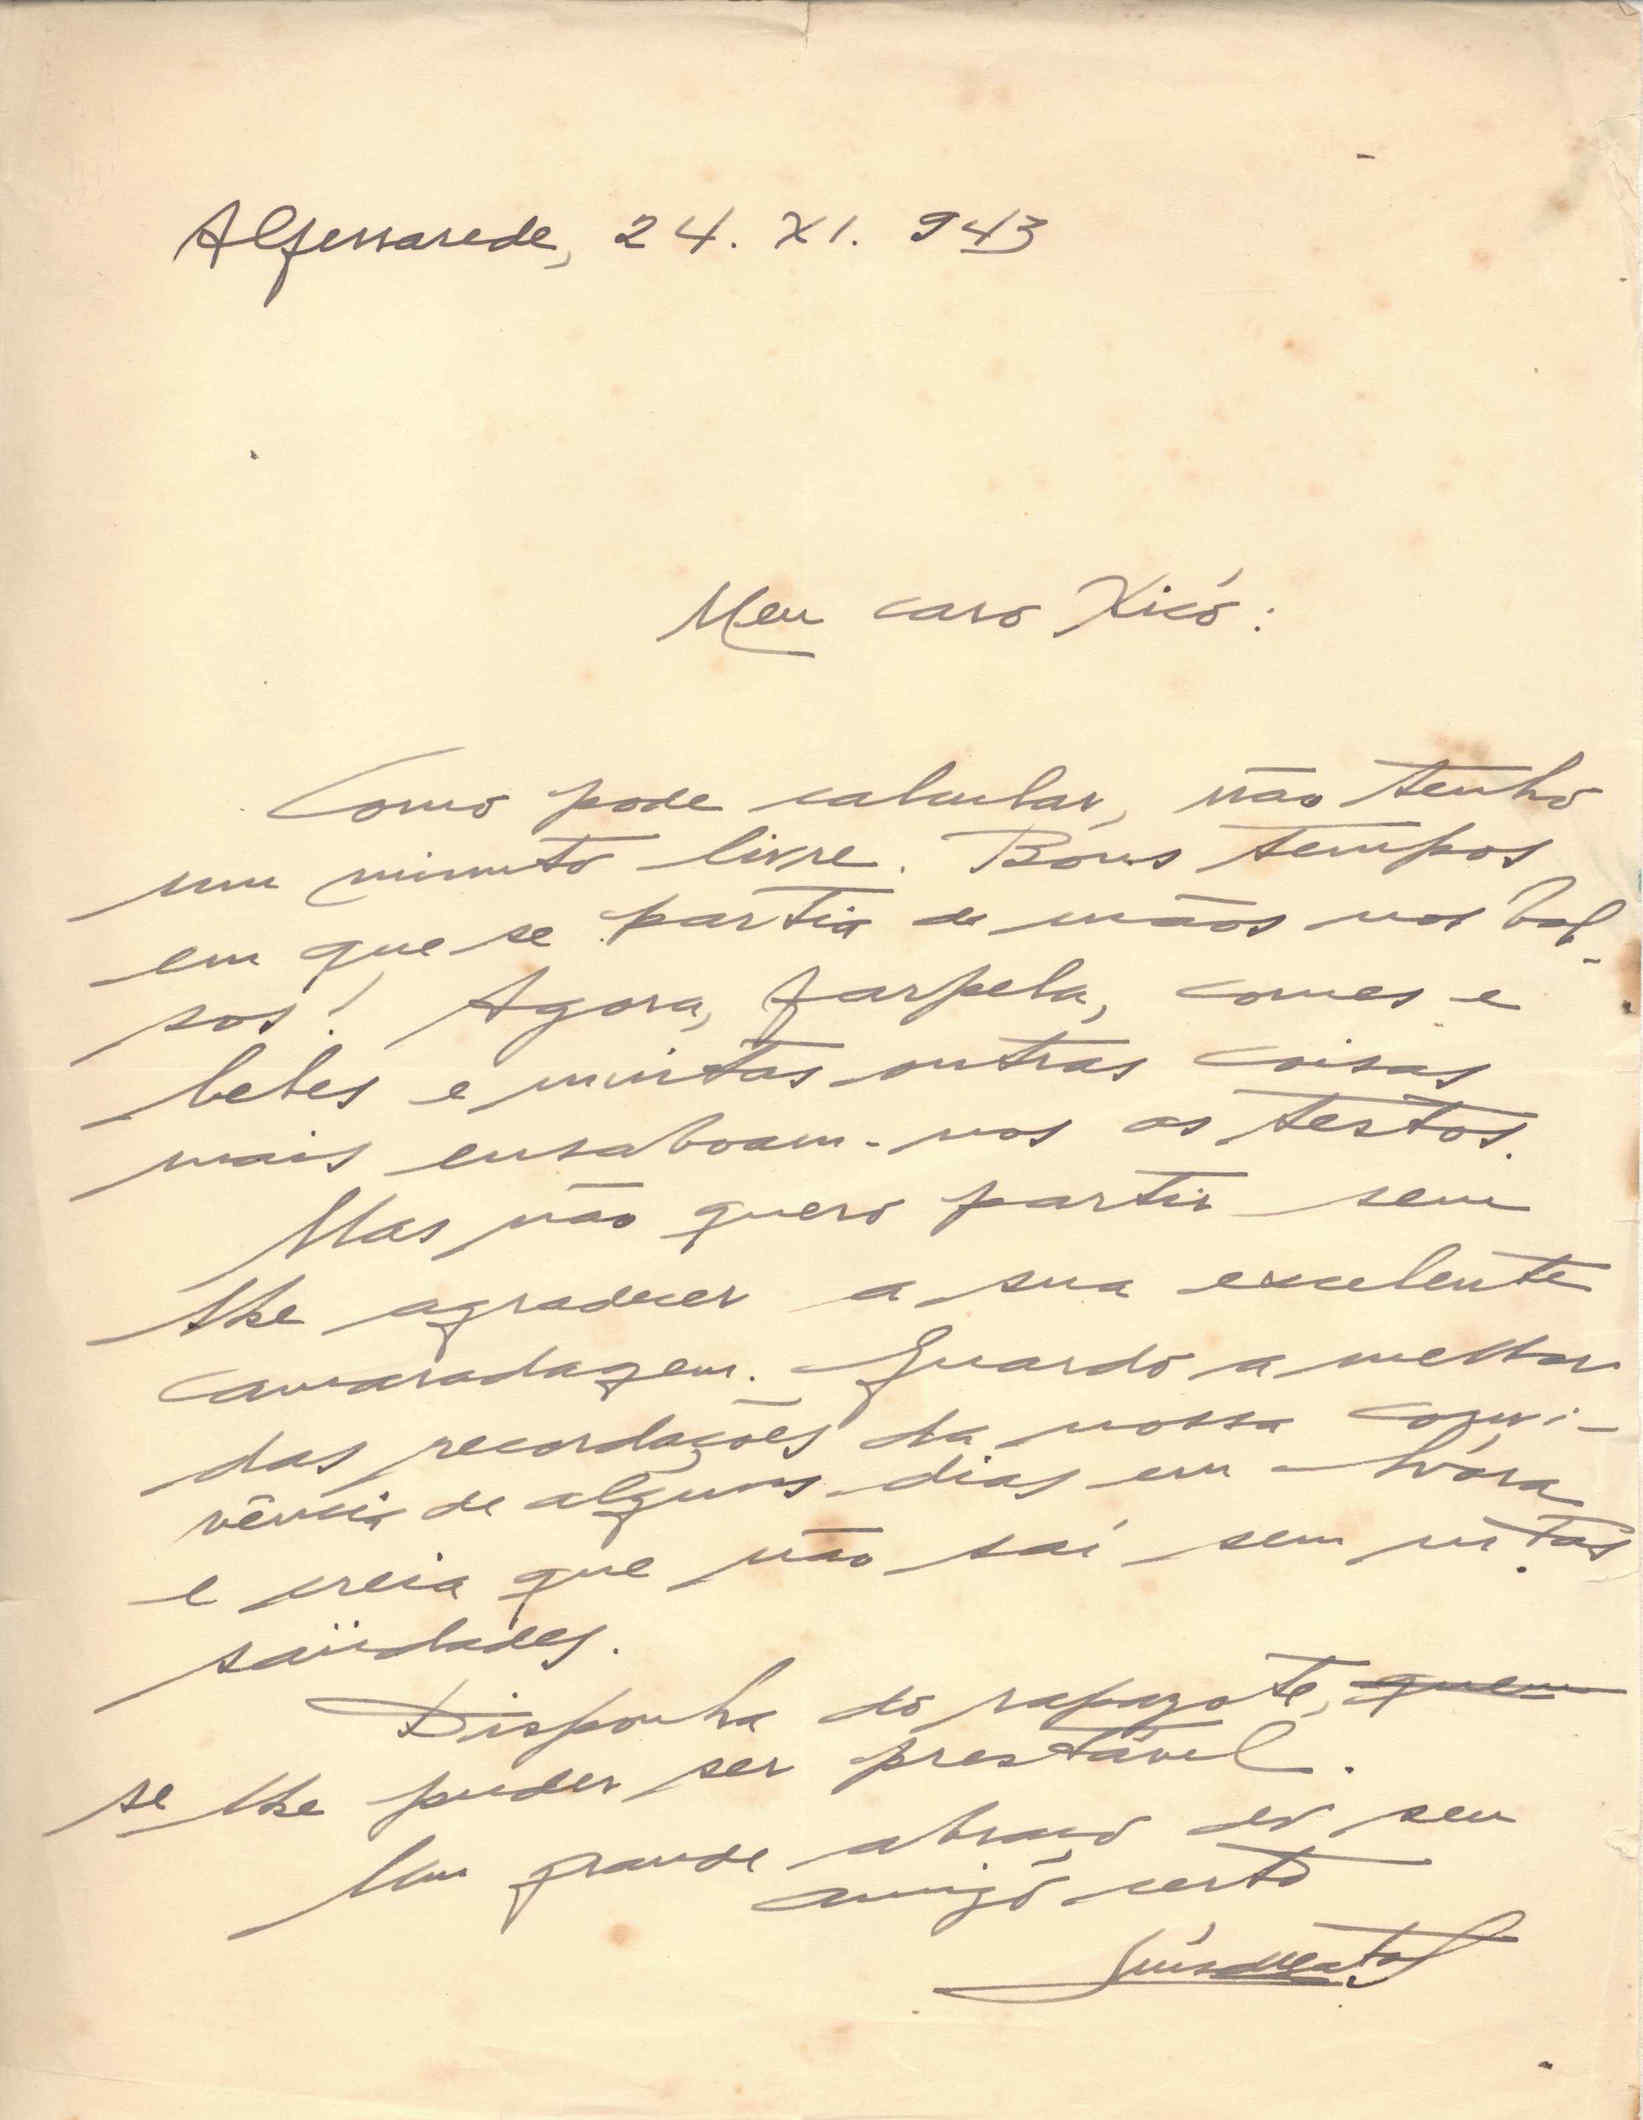 Alferrarede, 24. XI. 943
Meu caro Xicó:
Como pode calcular, não tenho
um minuto livre. Bons tempos
em que se partia de mãos nos bol-
sos! Agora, farpela, comes e
bebes e muitas outras coisas
mais ensaboam-nos os testos.
Mas não quero partir sem
lhe agradecer a sua excelente
camaradagem. Guardo a melhor
das recordações da nossa convi-
vência de alguns dias em
e creia que não saí sem mtas
saüdades.
Disponha do rapazote, quem
se lhe puder ser prestável.
Um grande abraço do seu
amigo certo
Luís Matos